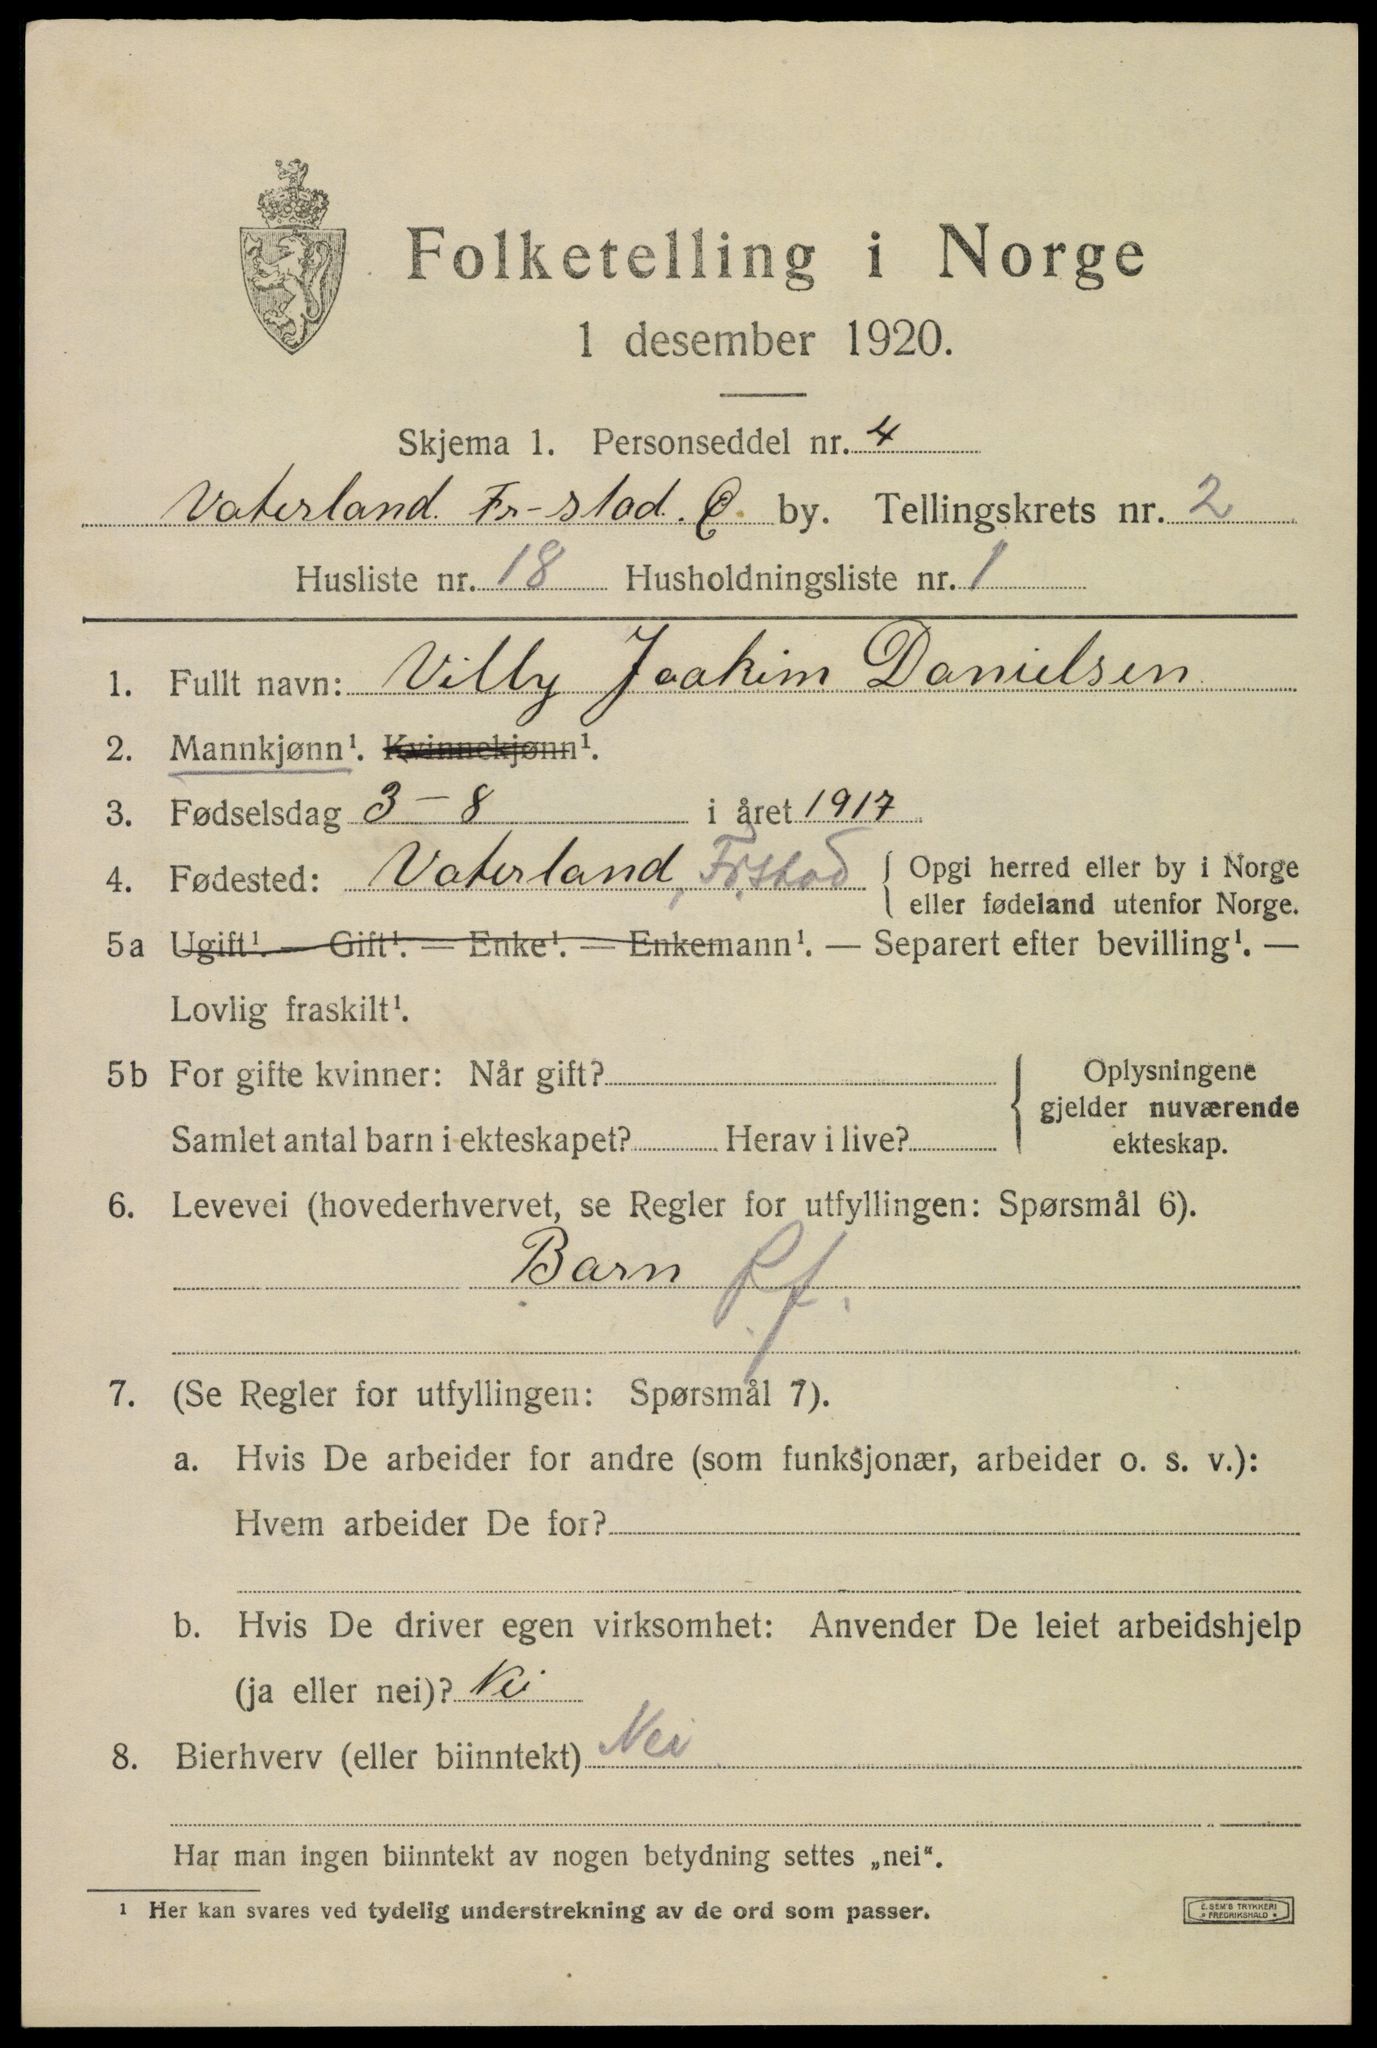 Folketelling i Norge
1 desember 1920.
Skjema 1. Personseddel nr. 4
Vaterland. Fr-stad. Ø. by. Tellingskrets nr. 2
Husliste nr. 18 Husholdningsliste nr. 1
1. Fullt navn: Villy Joakim Danielsen
2. Mannkjønn¹. Kvinnekjønn¹.
3. Fødselsdag 3-8 i året 1917
4. Fødested: Vaterland, Fr.stad { Opgi herred eller by i Norge
eller fødeland utenfor Norge.
5a Ugift¹. — Gift¹. — Enke¹. — Enkemann¹. — Separert efter bevilling¹. —
Lovlig fraskilt¹.
5b For gifte kvinner: Når gift? { Oplysningene
gjelder nuværende
Samlet antal barn i ekteskapet? Herav i live? ekteskap.
6. Levevei (hovederhvervet, se Regler for utfyllingen: Spørsmål 6).
Barn P.f.
7. (Se Regler for utfyllingen: Spørsmål 7).
a. Hvis De arbeider for andre (som funksjonær, arbeider o. s. v.):
Hvem arbeider De for?
b. Hvis De driver egen virksomhet: Anvender De leiet arbeidshjelp
(ja eller nei)? Nei
8. Bierhverv (eller biinntekt) Nei
Har man ingen biinntekt av nogen betydning settes „nei“.
¹ Her kan svares ved tydelig understrekning av de ord som passer.
E. SEM'S TRYKKERI
FREDRIKSHALD